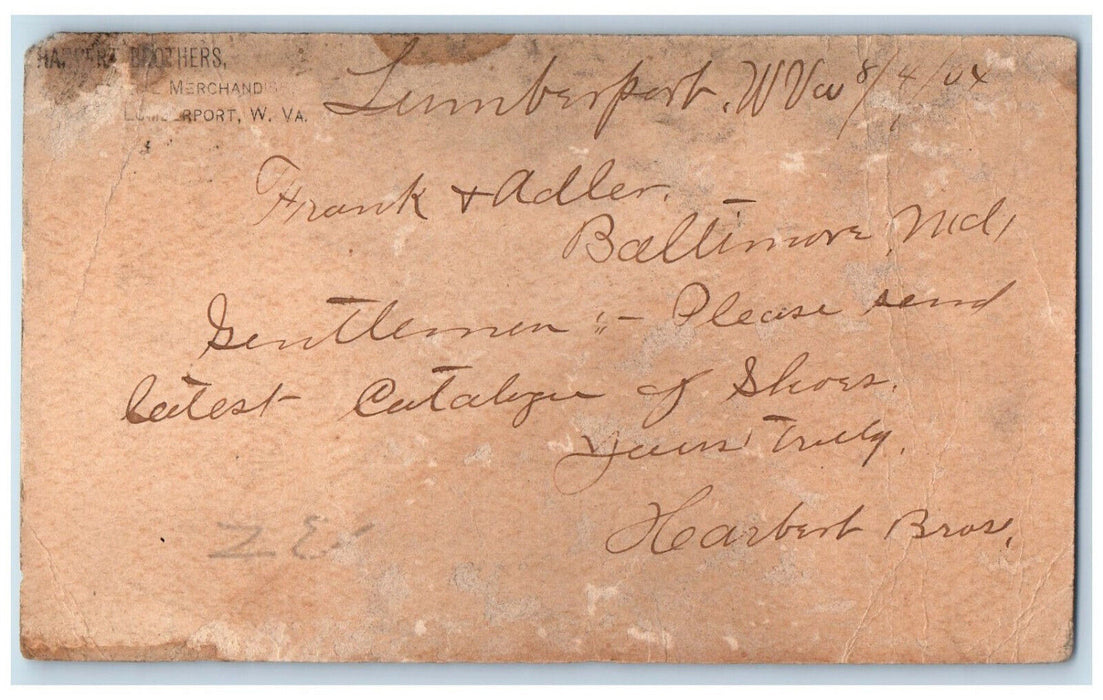 BROTHERS,
MERCHANDISE,
LUMBERPORT, W. VA.
Lumberport, W Va 8/4/04
Frank + Adler.
Baltimore, Md,
Gentlemen :- Please send
latest Catalogue of Shoes.
Yours Truly,
Harbert Bros.